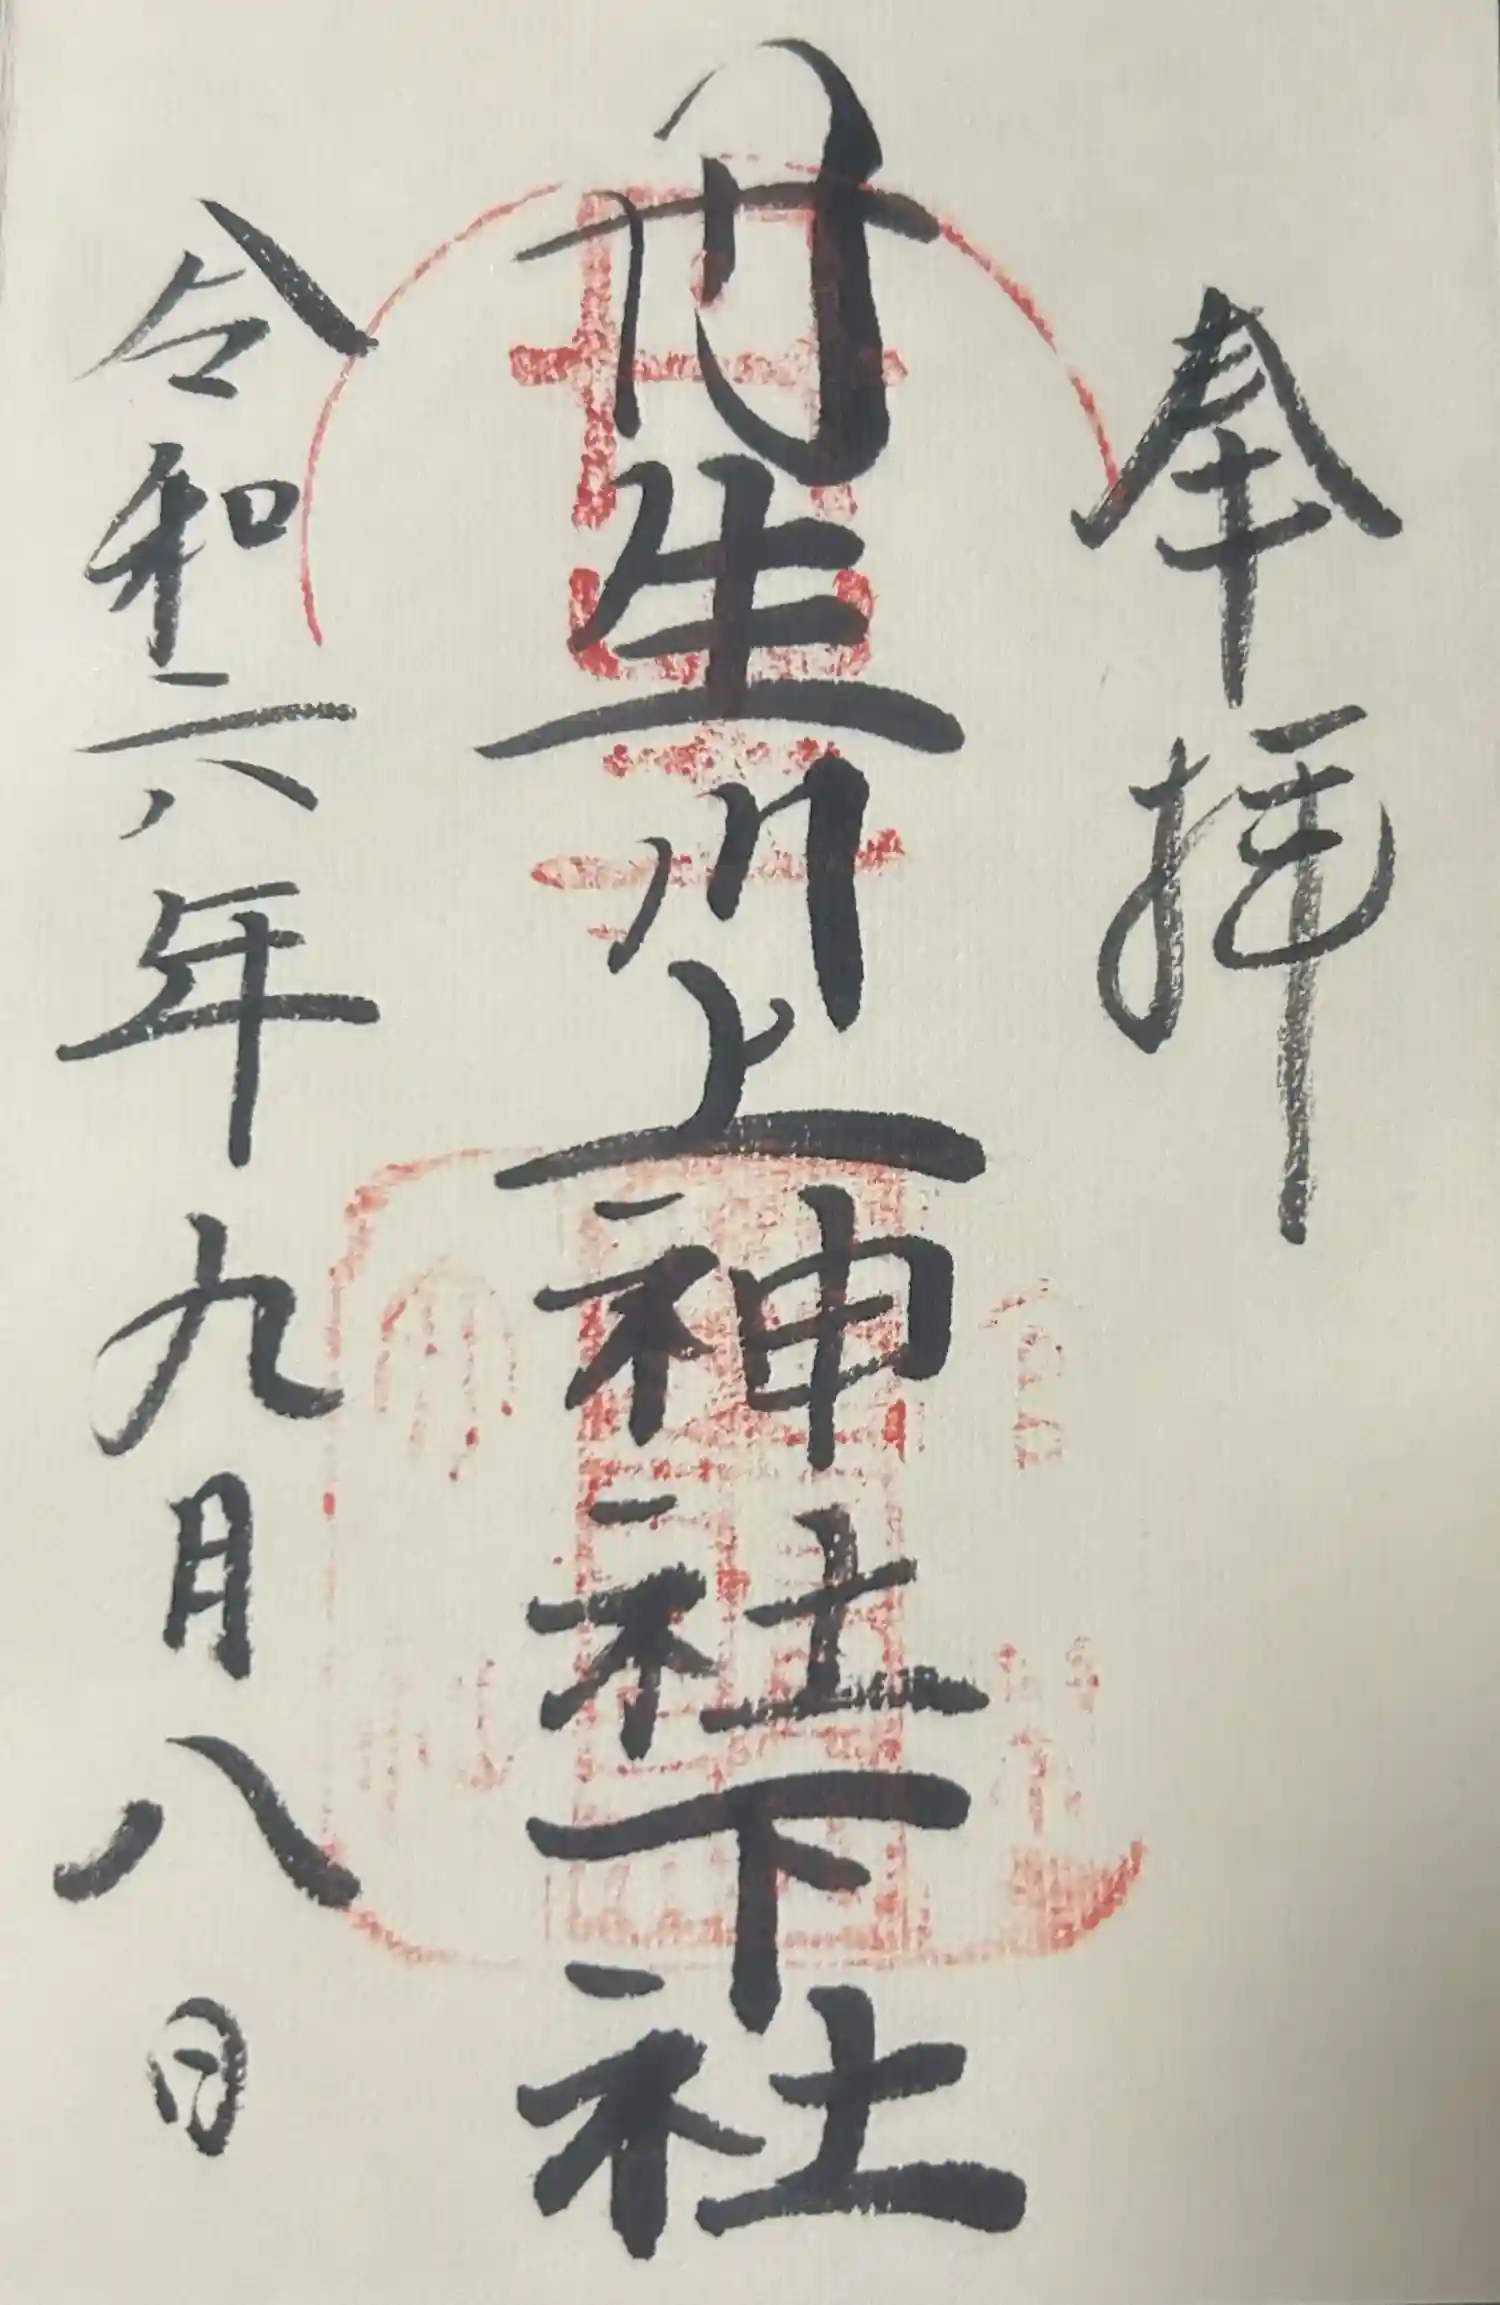 奉拝
丹生川上神社下社
令和六年九月八日